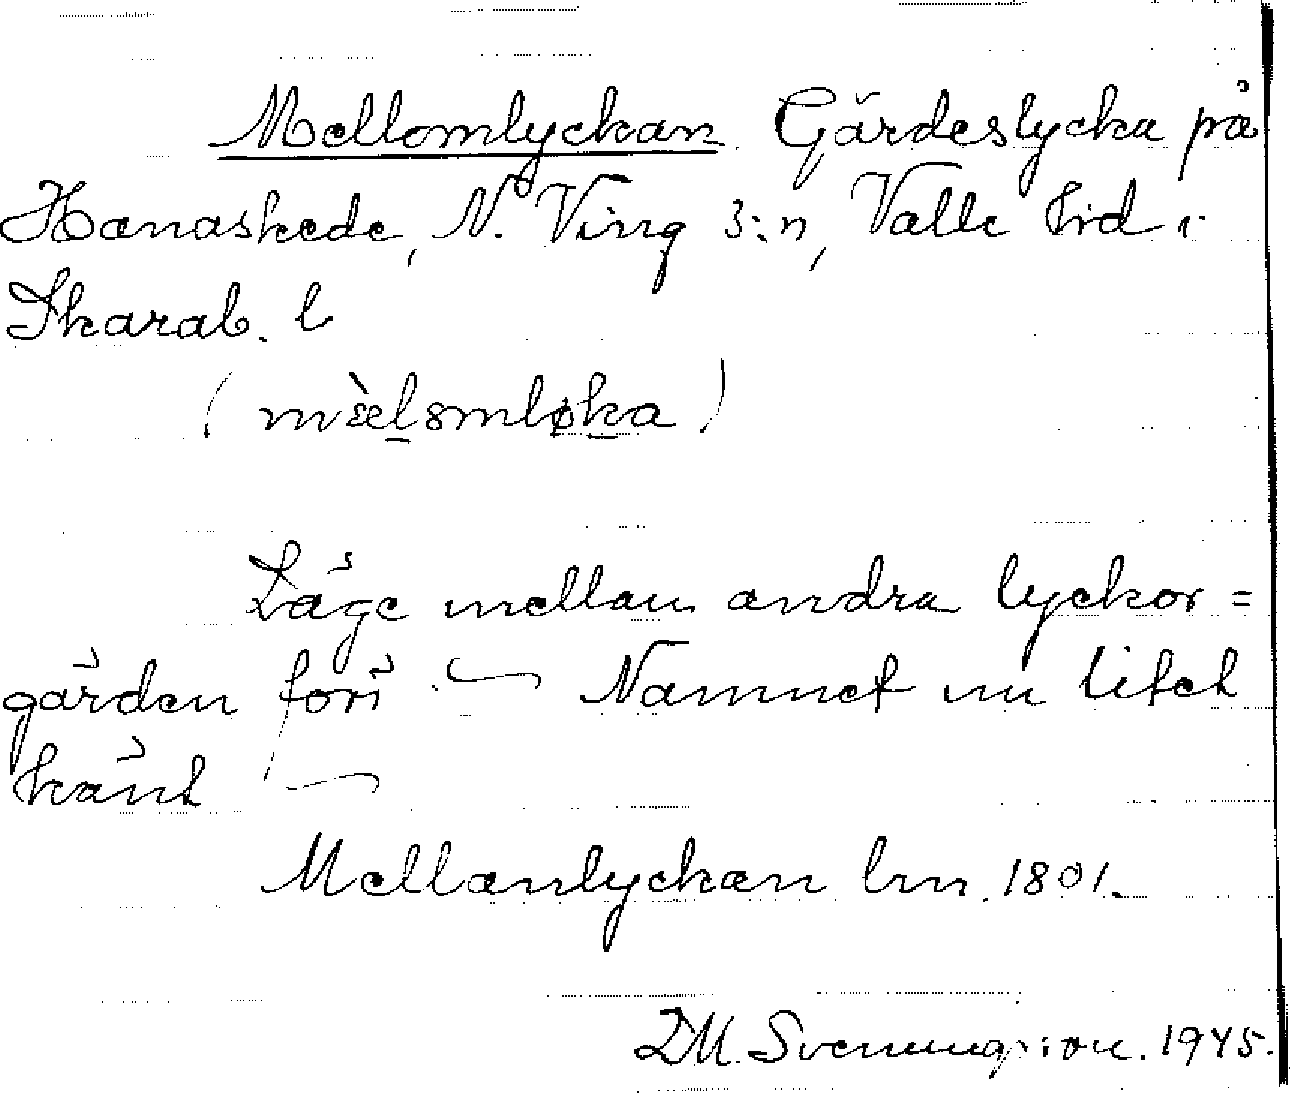 Mellomlyckan Gärdeslycka på
Hanaskede, N. Ving 3:n, Valle hd i
Skarab. l
(mæ̀lsmlɵka)
Läge mellan andra lyckor =
gärden förr — Namnet nu litet
känt —
Mellanlyckan lm. 1801.
D M. Svenungsson. 1945.